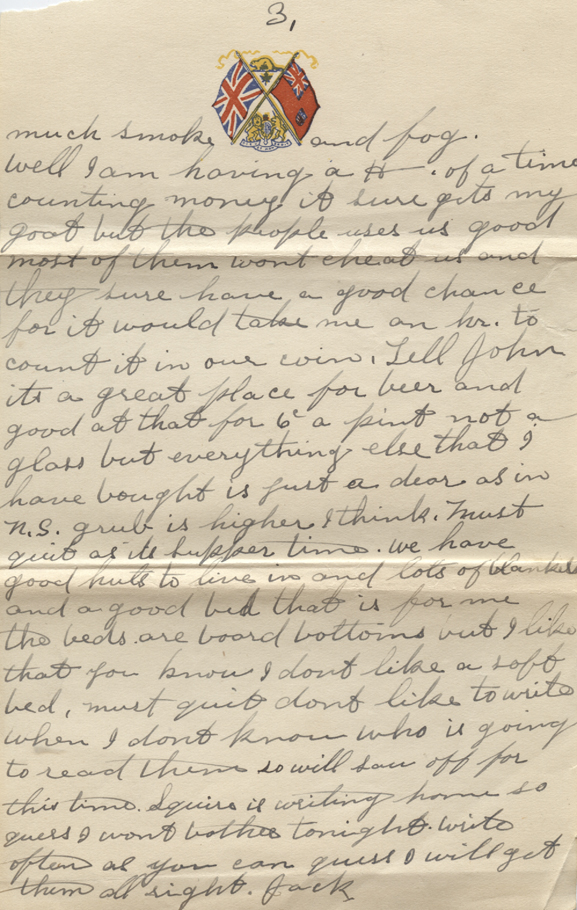 3,
much smoke and fog.
Well I am having a H—. of a time
counting money it sure gets my
goat but the people uses us good
most of them wont cheat us and
they sure have a good chance
for it would take me an hr. to
count it in our coin. Tell John
its a great place for beer and
good at that for 6c a pint not a
glass but everything else that I
have bought is just a dear as in
N.S. grub is higher I think. Must
quit as its supper time. we have
good huts to live in and lots of blankets
and a good bed that is for me
the beds are board bottoms but I like
that you know I dont like a soft
bed, must quit dont like to write
when I dont know who is going
to read them so will saw off for
this time. Squire is writing home so
guess I wont bother tonight. write
often as you can guess I will get
them all right. Jack